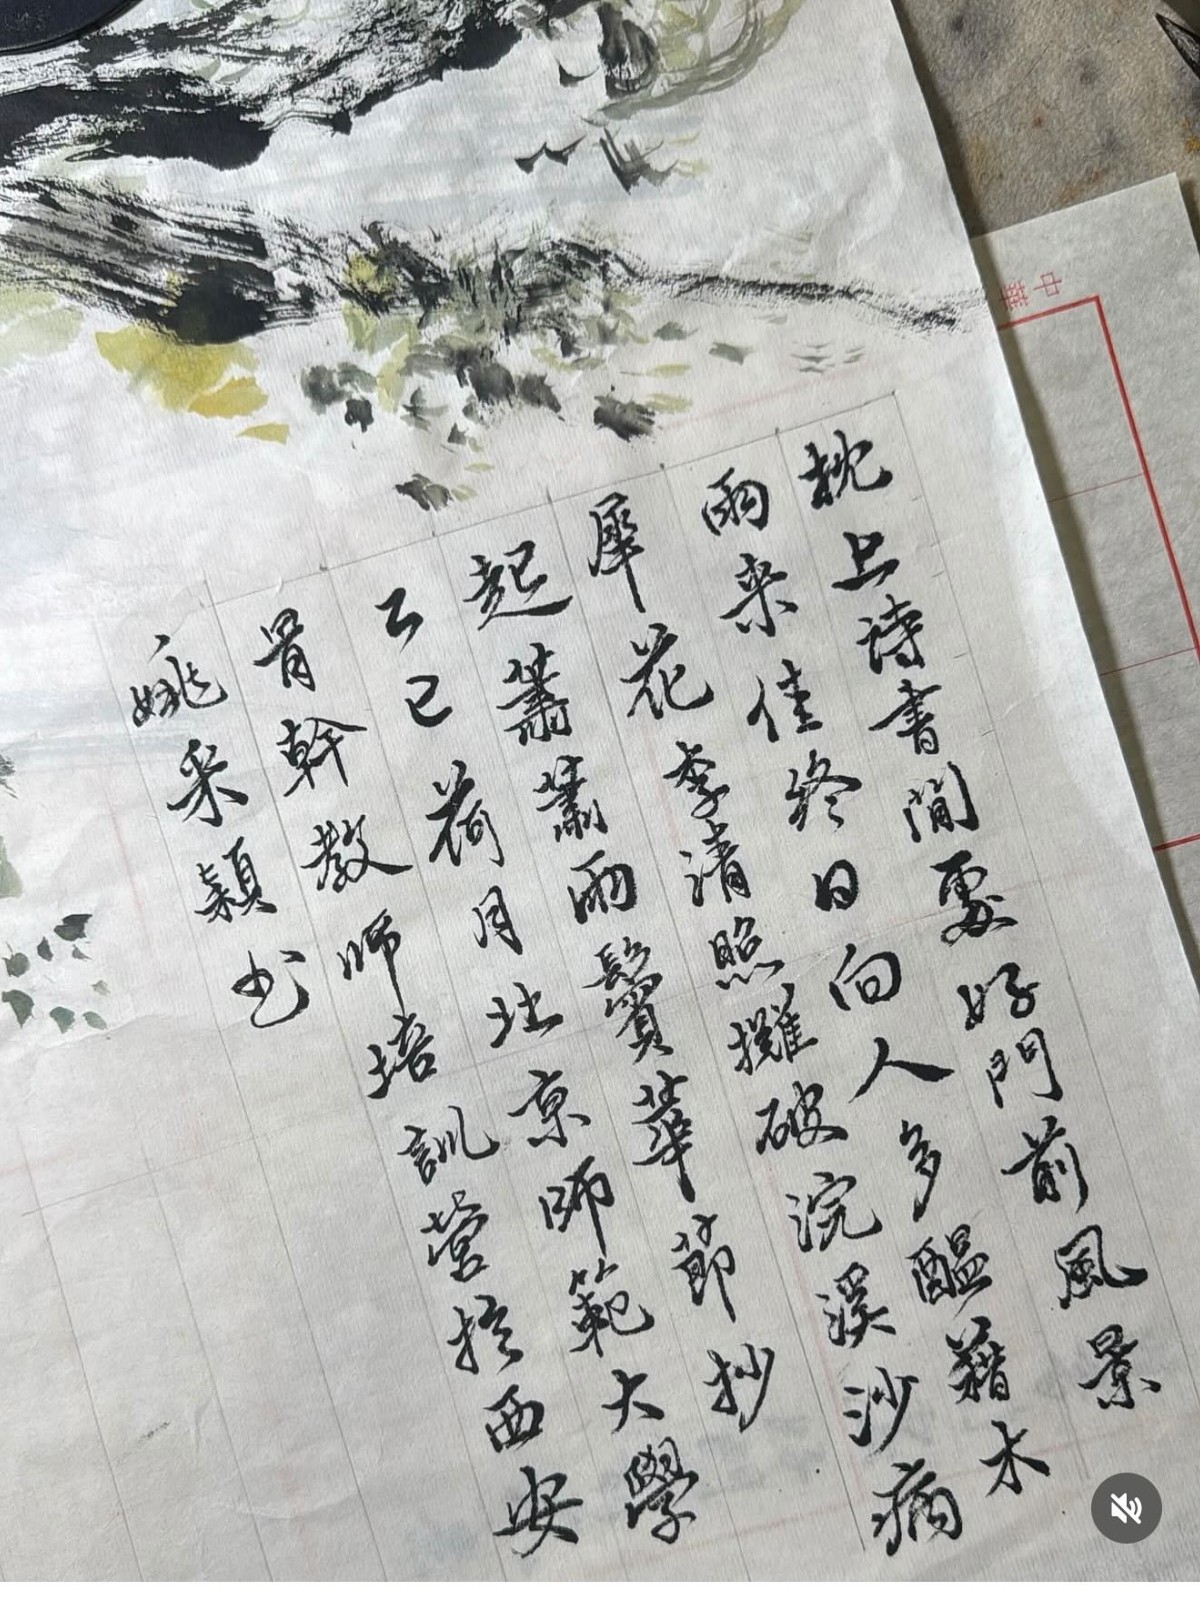 枕上詩書閒處好門前風景
雨来佳終日向人多醞藉木
犀花李清照攤破浣溪沙病
起蕭蕭兩鬢華節抄
乙巳荷月北京師範大學
骨幹教師培訓營於西安
姚采穎书
中華